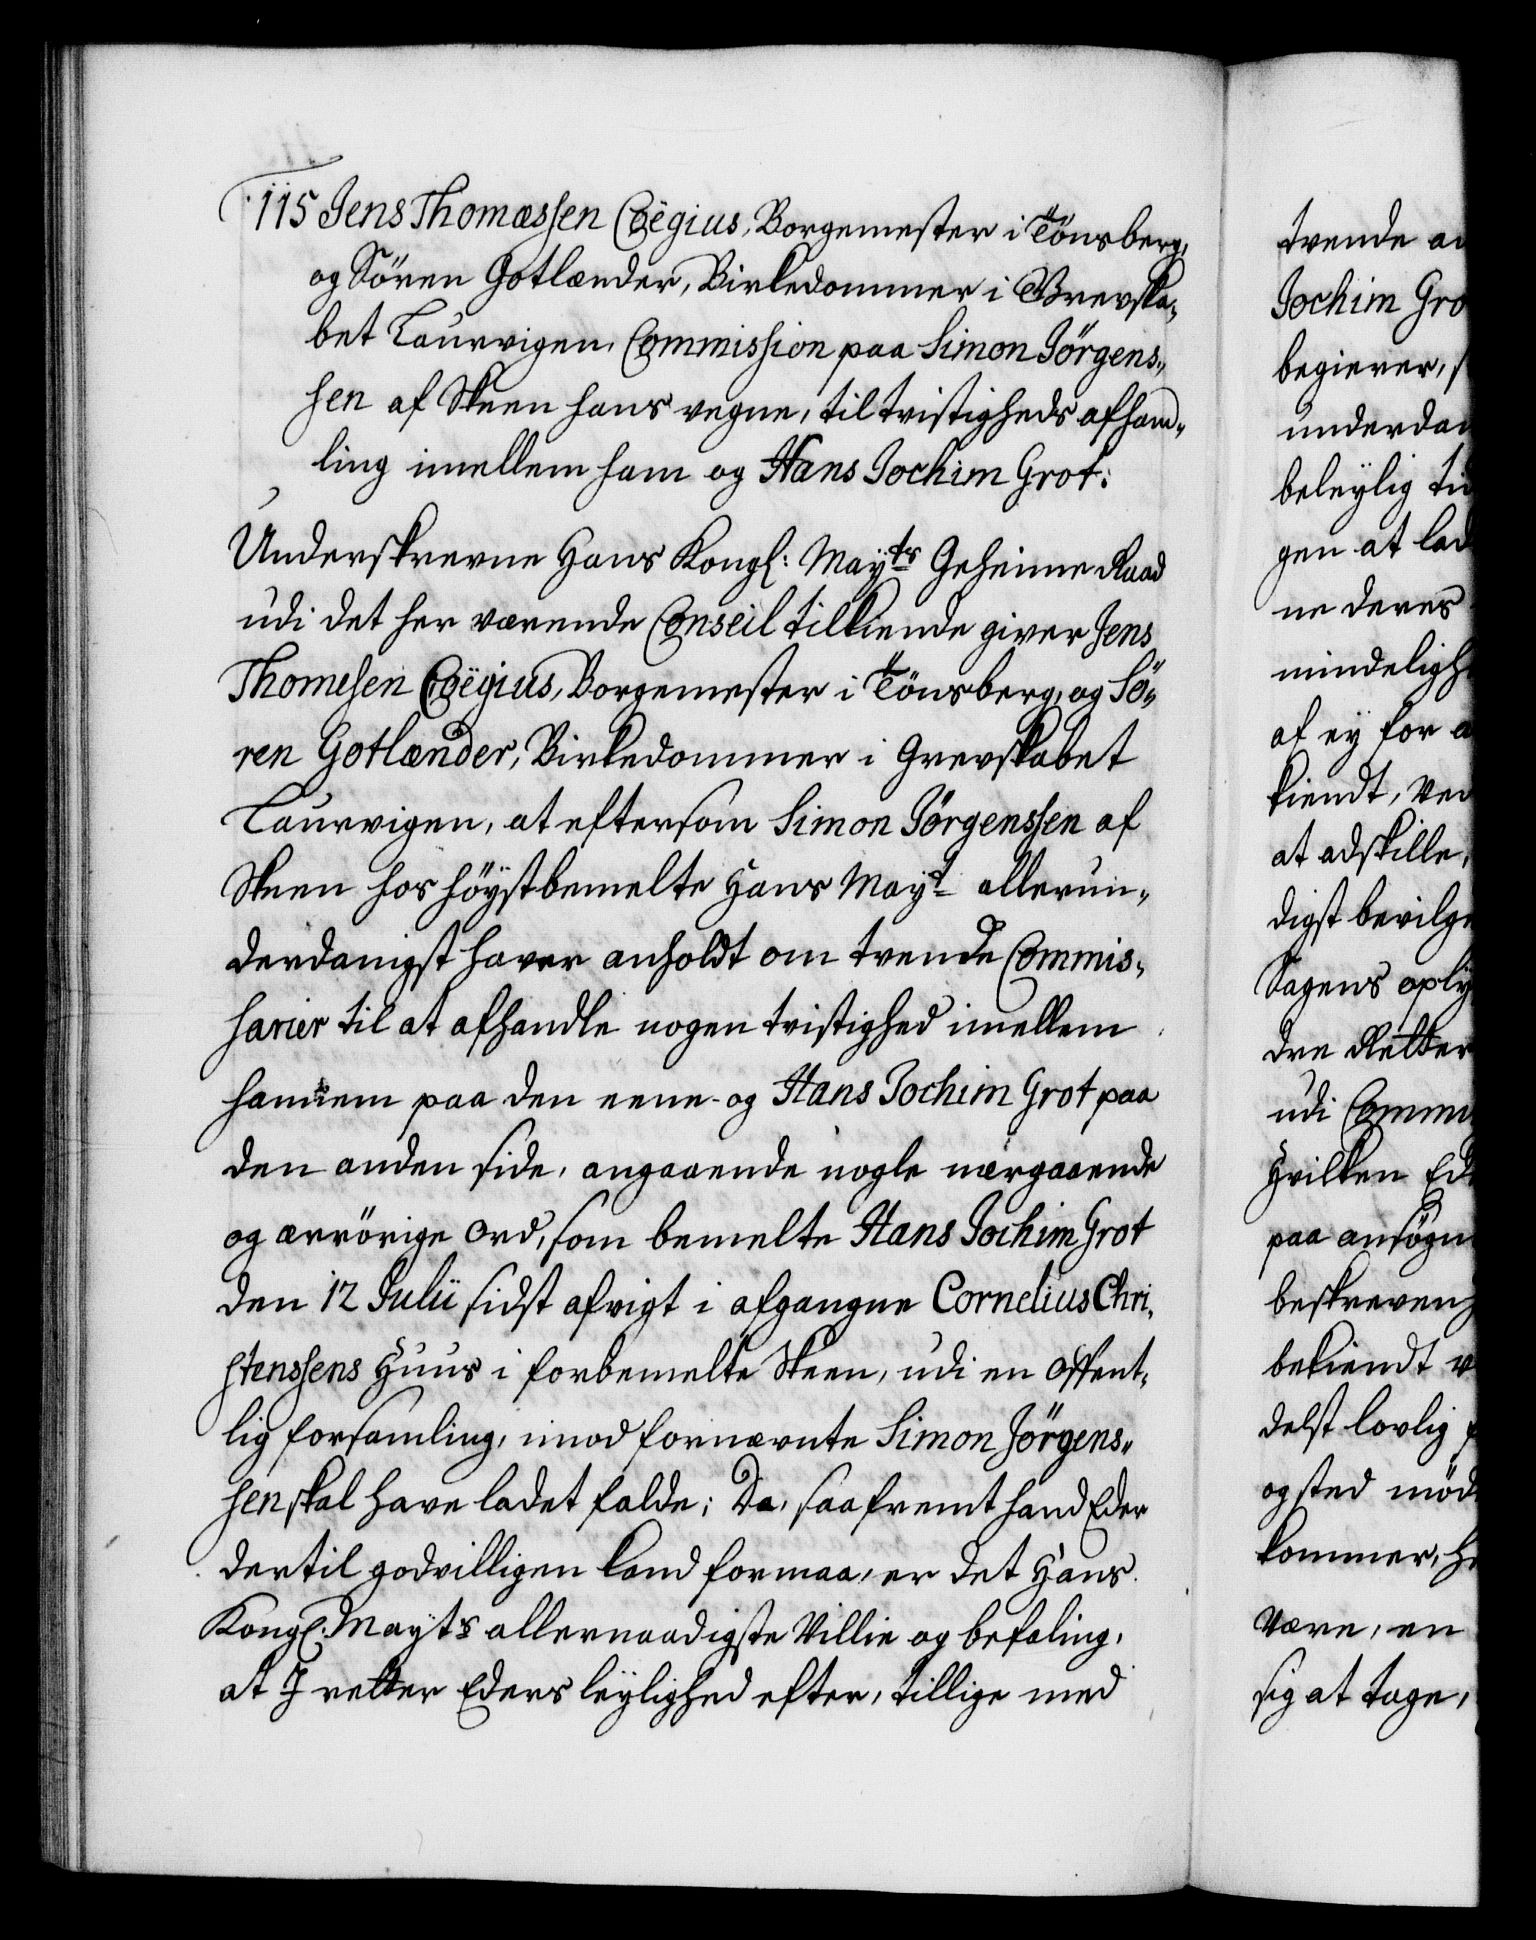 115 Jens Thomæssen Coëgius, Borgemester i Tönsberg,
og Sören Gotlænder, Birkedommer i Grevska„
bet Laurvigen, Commission paa Simon Jörgens„
sen af Skeen hans vegne, til tvistigheds afhan„
ling imellem ham og Hans Jochim Grot:
Underskrevne Hans Kongl: Mayts Geheime Raad
udi det her værende Conseil tilkiende giver Jens
Thomesen Coëgius, Borgemester i Tönsberg, og Sö„
ren Gotlænder, Birkedommer i Grevskabet
Laurvigen, at eftersom Simon Jörgenssen af
Skeen hos höystbemelte Hans Mayt allerun„
derdanigst haver anholdt om tvende Commis„
sarier til at afhandle nogen tvistighed imellem
hannem paa den eene og Hans Jochim Grot paa
den anden side, angaaende nogle nærgaaende
og ærrörige ord, som bemelte Hans Jochim Grot
den 12 Julii sidst afvigt i afgangne Cornelius Chri„
stenssens Huus i forbemelte Skeen, udi en offent„
lig forsamling, imod fornævnte Simon Jörgens„
sen skal have ladet falde; Da, saafremt hand Eder
dertil godvilligen kand formaa, er det Hans
Kongl: Mayts allernaadigste Villie og befaling,
at I retter Eders leylighed efter, tillige med
tvende
Jochim Gro
begierer,
underdan
beleylig
gen at lad
ne deres
mindeligh
af ey for
kiendt, ved
at adskille,
digst bevilge
Sagens oply
dre Retter
udi Commi
Hvilken Ed
paa ansögn
beskreven
bekiendt
delst lovlig
og sted möd
kommer,
være, en
sig at tage,